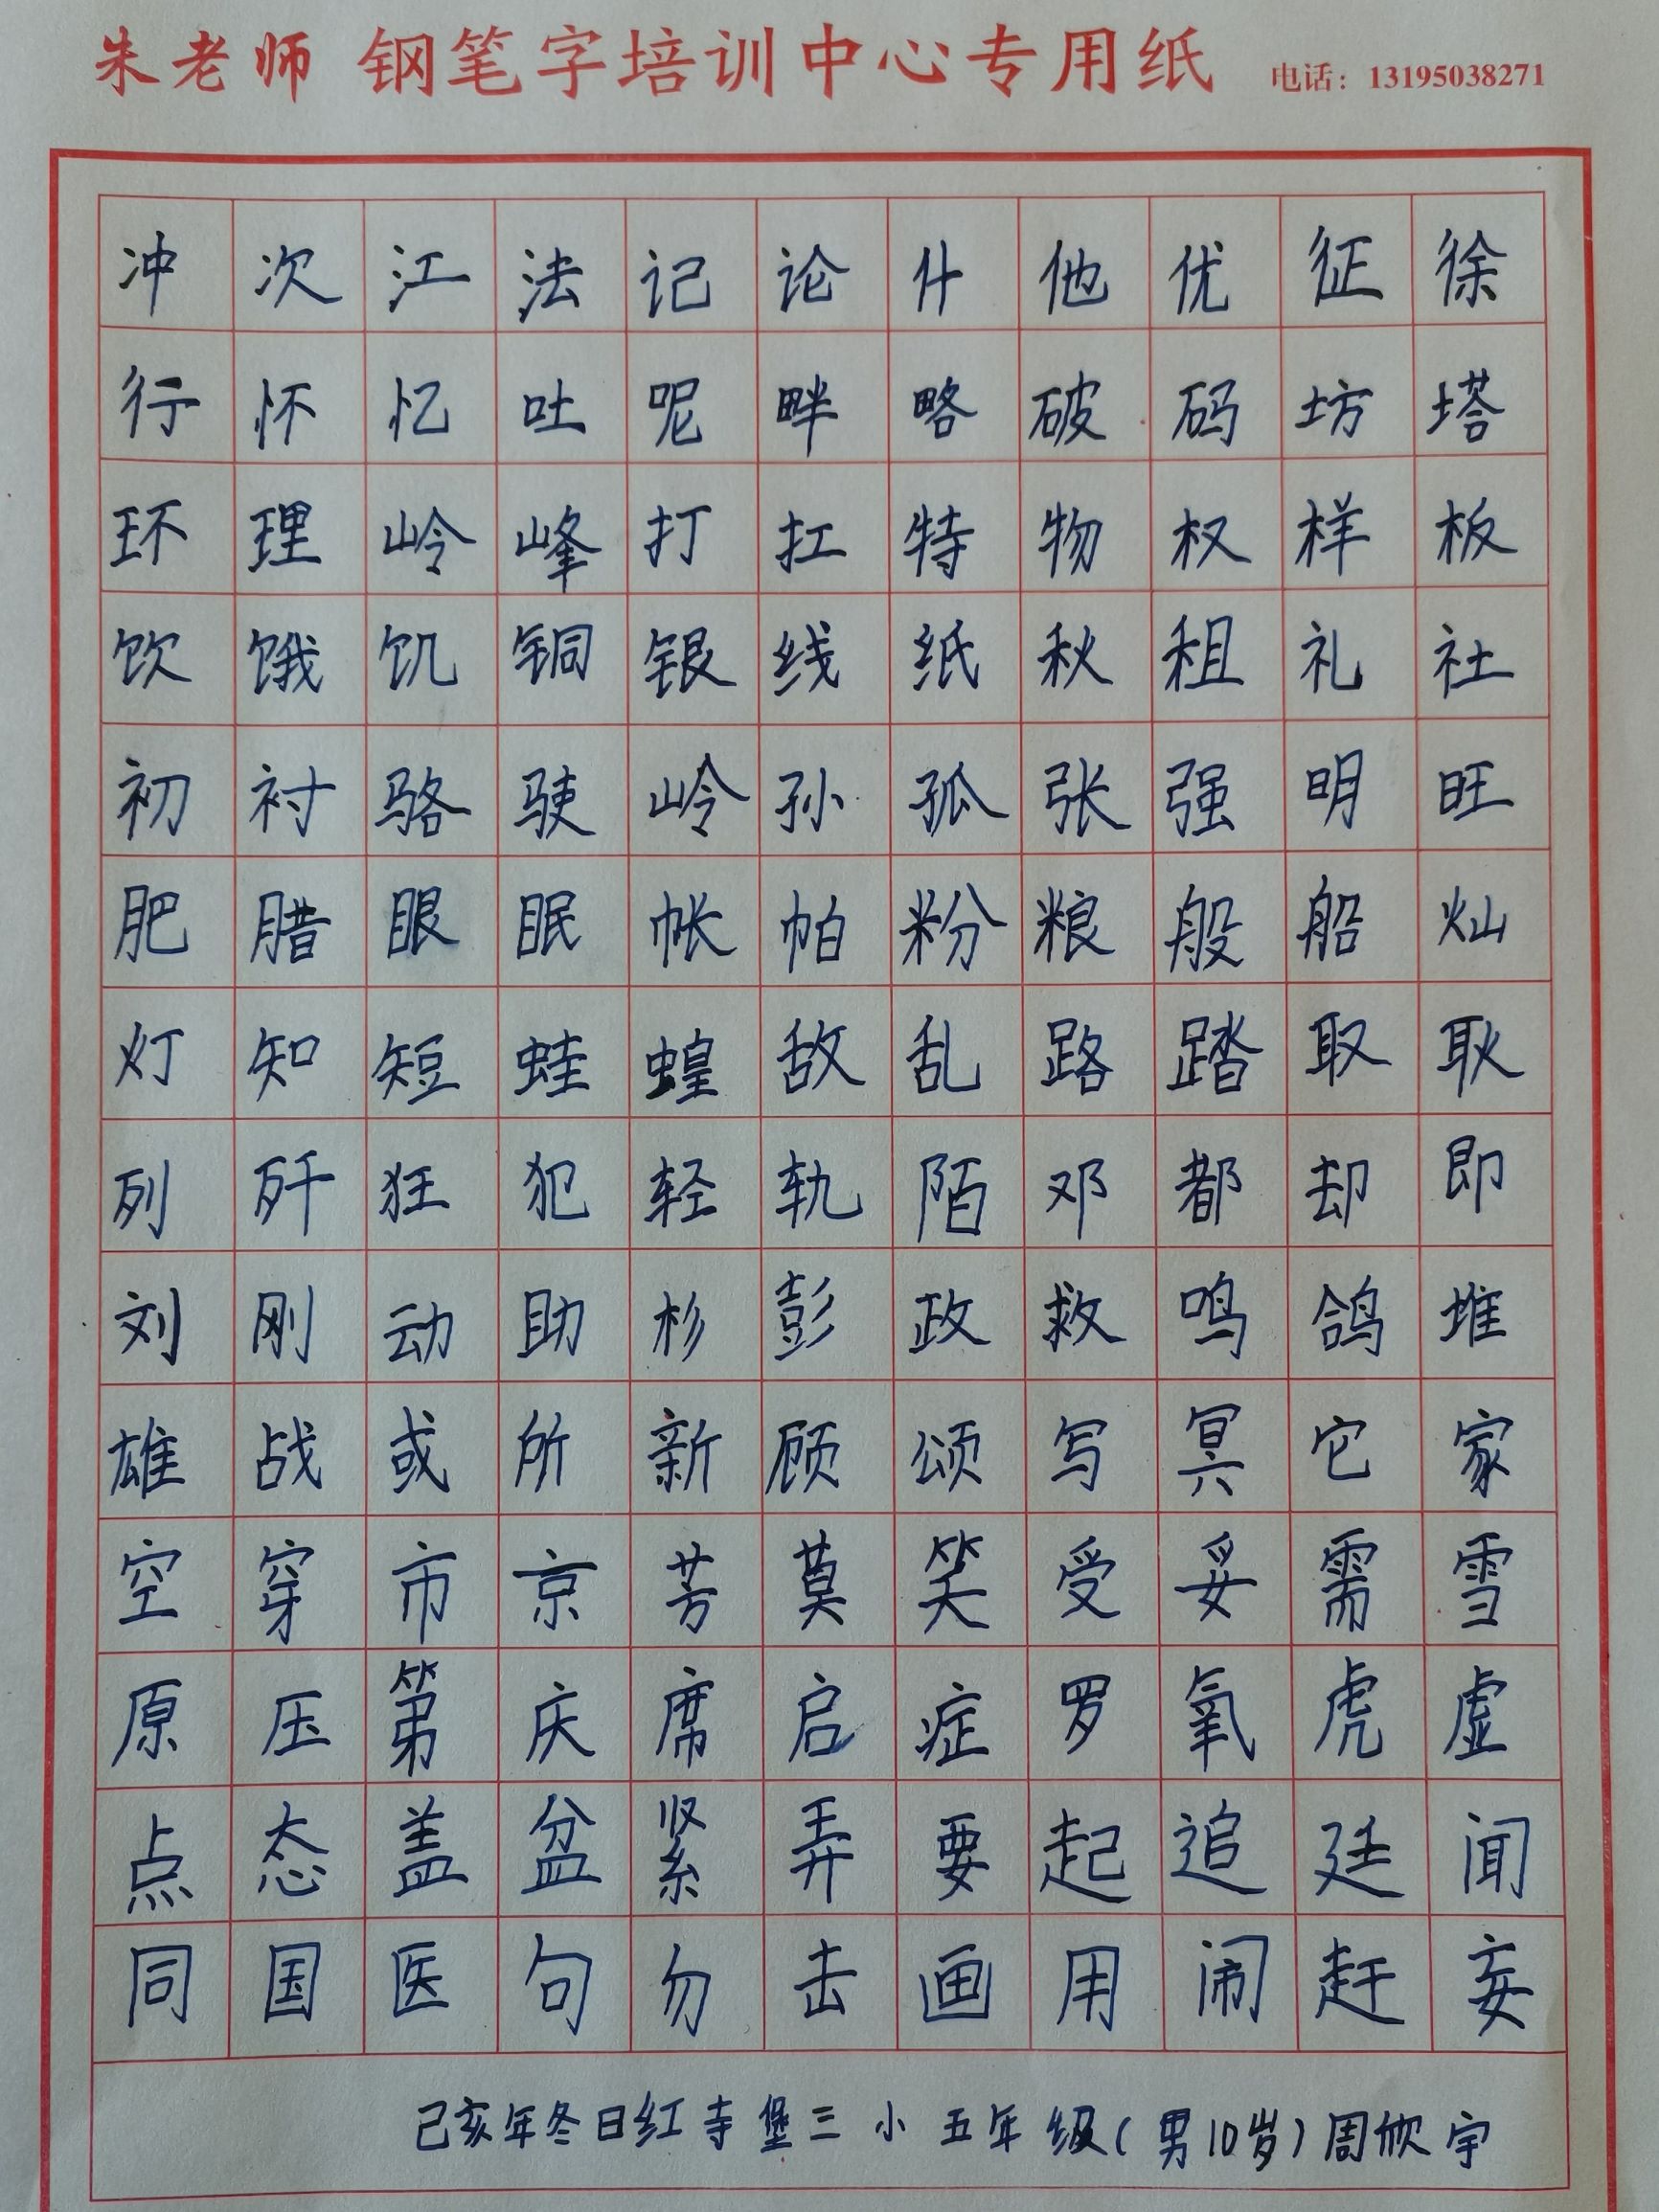 朱老师 钢笔字培训中心专用纸 电话：13195038271
冲 次 江 法 记 论 什 他 优 征 徐
行 怀 忆 吐 呢 畔 略 破 码 坊 塔
环 理 岭 峰 打 扛 特 物 权 样 板
饮 饿 饥 铜 银 线 纸 秋 租 礼 社
初 衬 骆 驶 岭 孙 孤 张 强 明 旺
肥 腊 眼 眠 帐 帕 粉 粮 般 船 灿
灯 知 短 蛙 蝗 敌 乱 路 踏 取 耿
列 歼 狂 犯 轻 轨 陌 邓 都 却 即
刘 刚 动 助 杉 彭 政 救 鸣 鸽 堆
雄 战 或 所 新 顾 颂 写 冥 它 家
空 穿 市 京 芳 莫 笑 受 妥 需 雪
原 压 第 庆 席 启 症 罗 氧 虎 虚
点 态 盖 盆 紧 弄 要 起 追 廷 闻
同 国 医 句 勿 击 画 用 闹 赶 妄
己亥年冬日红寺堡三小五年级(男10岁)周欣宇